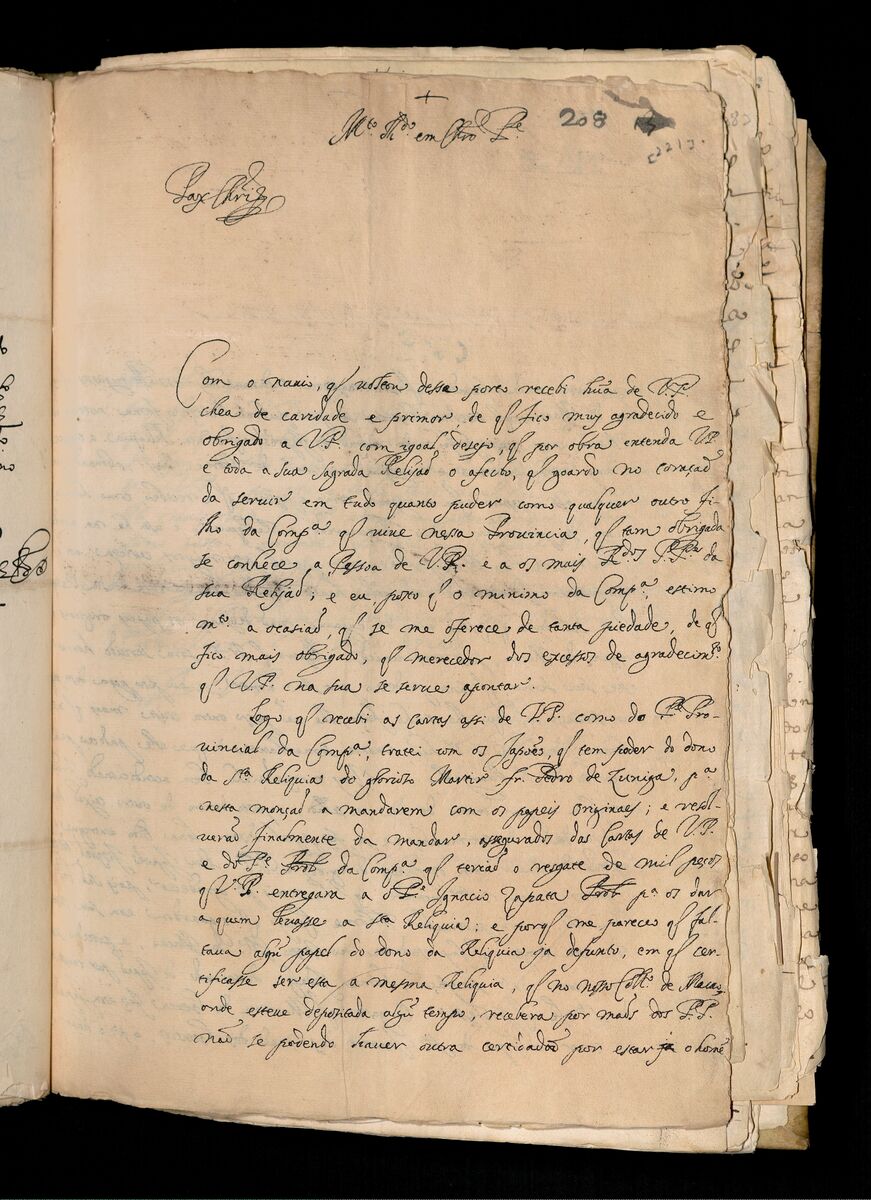 +
208
Mto Rdo em Chro Pe
Pax Chri
Com o nauio, q̃ uoltou desse porto recebi hũa de V.P.
chea de caridade e primor, de q̃ fico muy agradecido e
obrigado a V.P. com igoal desejo, q̃ por obra entenda V.P.
e toda a sua sagrada Relijaõ o afecto, q̃ goardo no coraçaõ
da seruir em tudo quanto puder como qualquer outro fi-
lho da Compa. q̃ uiue nessa Prouincia, q̃ tam obrigada
se conhece a Pessoa de V.P. e a os mais Rdos P.Pes da
sua Relijaõ; e eu posto q̃ o minimo da Compa. estimo
mto. a ocasiaõ, q̃ se me oferece de tanta piedade, de q̃
fico mais obrigado, q̃ merecedor dos excessos de agradecimto.
q̃ V.P. na sua se serue apontar.
Logo q̃ recebi as cartas assi de V.P. como do Pe Pro-
uincial da Compa., tratei com os Japões, q̃ tem poder do dono
da sta Reliquia do glorioso Martir fr. Pedro de Zuniga, pa.
nesta monçaõ a mandarem com os papeis originaes; e resol-
ueraõ finalmente da mandar, assegurados das Cartas de V.P.
e do Pe Prob da Compa. q̃ teriaõ o resgate de mil pesos
q̃ V.P. entregara a o Pe Ignacio Zapata Prob pa. os dar
a quem leuasse a sta Reliquia; e porq̃ me pareceo q̃ fal-
taua algũ papel do dono da Reliquia ja defunto, em q̃ cer-
tificasse ser esta a mesma Reliquia, q̃ no nosso Collo. de Macao,
onde esteue depositada algũ tempo, recebera por maõs dos P.P.
naõ se podendo hauer outra certidaõ por estar ja o homẽ